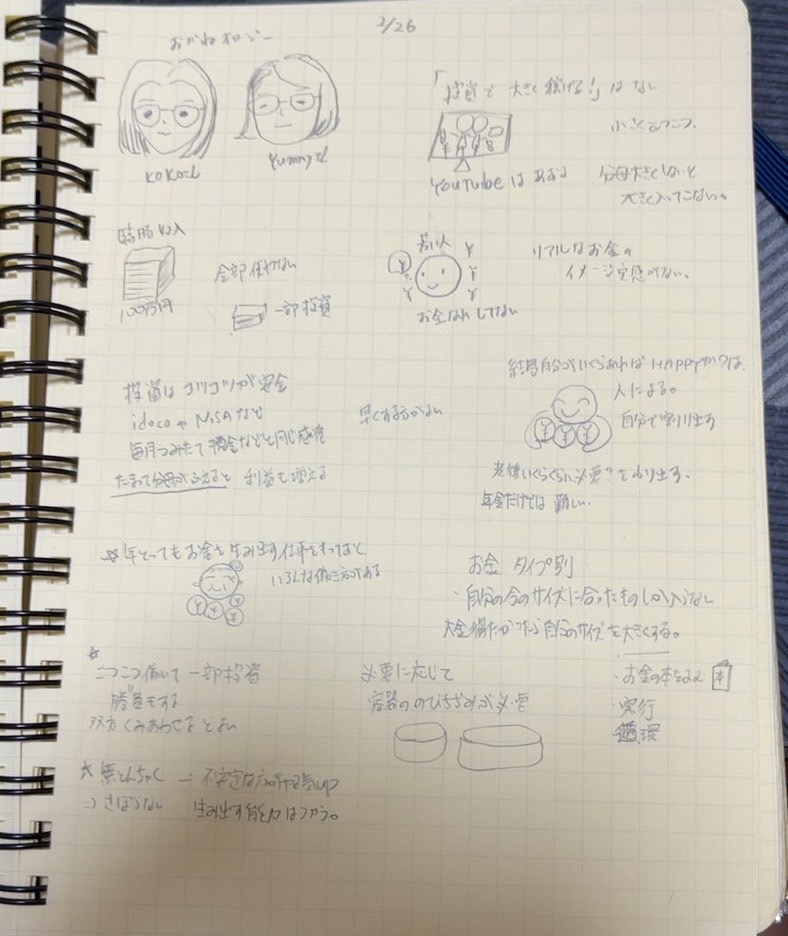 2/26
おかねオロジー
KOKOさん
Yummyさん
「投資で大きく稼げる!」はない
小さくコツコツ。
YouTubeはあおる
分母大きくしないと
大きく入ってこない。
臨時収入
100万円
全部使わない
一部投資
若い人
お金なれしてない
リアルなお金の
イメージ実感がない。
投資はコツコツが安全
idecoやNISAなど
毎月つみたて 預金などと同じ感覚
たまって分母がふえると 利益も増える
早くする方がよい
結局自分がいくらあればHAPPYか?は、
人による。
自分で割り出す
老後いくらくらい必要?をわり出す。
年金だけでは難しい。
☆年とってもお金を生み出す仕事をもっておく
いろんな働き方がある
お金 タイプ別
・自分の今のサイズに合ったものしか入らない
大金得たかったら自分のサイズを大きくする。
☆
コツコツ働いて一部投資
勝負もする
双方くみあわせるとよい
必要に応じて
容器ののびちぢみが必要
・お金の本をよむ
本
・実行
・循環
☆無とんちゃく
不安定な方がやる気up
⇒さぼらない
生み出す能力はつかう。